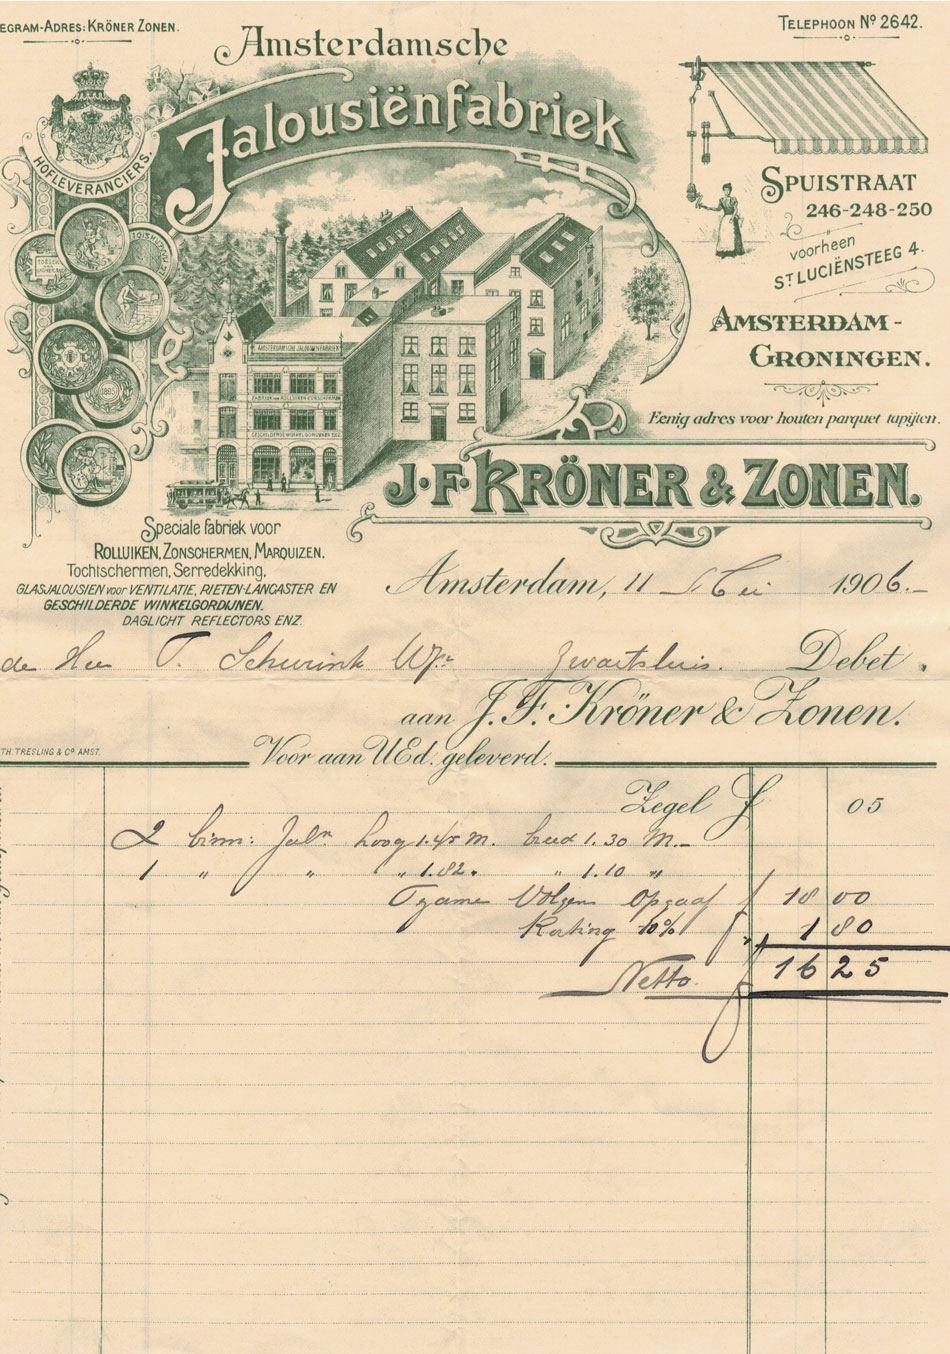 EGRAM-ADRES: KRÖNER ZONEN.
TELEPHOON No 2642.
Amsterdamsche
Jalousiënfabriek
HOFLEVERANCIERS.
SPUISTRAAT
246-248-250
voorheen
ST LUCIËNSTEEG 4.
AMSTERDAM-
GRONINGEN.
Eenig adres voor houten parquet tapijten.
AMSTERDAMSCHE JALOUSIËNFABRIEK
J.F. KRÖNER & ZONEN.
Speciale fabriek voor
ROLLUIKEN, ZONSCHERMEN, MARQUIZEN,
Tochtschermen, Serredekking,
GLASJALOUSIEN voor VENTILATIE, RIETEN-LANCASTER EN
GESCHILDERDE WINKELGORDIJNEN.
DAGLICHT REFLECTORS ENZ.
Amsterdam, 11 Mei 1906.-
de Heer T. Schurink Wzn Zwartsluis. Debet,
aan J. F. Kröner & Zonen.
TH. TRESLING & Co AMST.
Voor aan UEd. geleverd.
Zegel f 05
2 binn: Jaln hoog 1.45 M. breed 1.30 M.-
1 " " " 1.82. " 1.10 "
Tzamen Volgens Opgaaf f 18 00
Korting 10% f 1 80
Netto. f 16 25